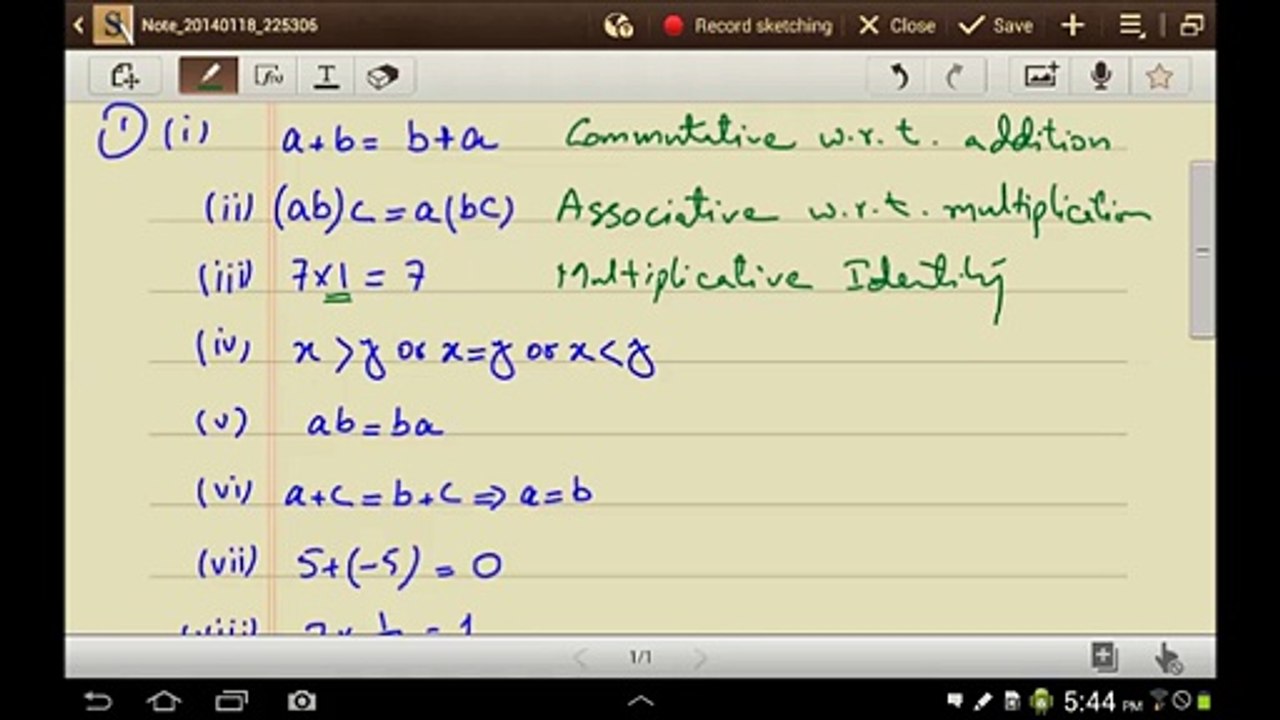 Note_20140118_225305 Record sketching Close Save
① (i) a+b = b+a Commutative w.r.t. addition
(ii) (ab)c = a(bc) Associative w.r.t. multiplication
(iii) 7×1 = 7 Multiplicative Identity
(iv) x > y or x = y or x < y
(v) ab = ba
(vi) a+c = b+c ⇒ a = b
(vii) 5+(-5) = 0
1/1
5:44 PM